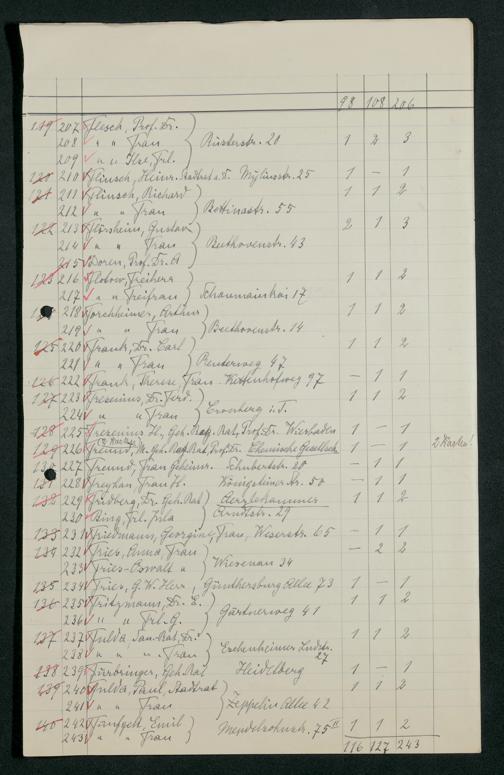 98 108 206
119 207 Flesch, Prof. Dr.
208 " " Frau Rüsterstr. 20 1 2 3
209 " " Ilse, Frl.
120 210 Flinsch, Heinr. Stadtrat a. D. Myliusstr. 25 1 – 1
121 211 Flinsch, Richard 1 1 2
212 " " Frau Bettinastr. 55
122 213 Flörsheim, Gustav 2 1 3
214 " " Frau Beethovenstr. 43
215 Doren, Prof. Dr. A
123 216 Flotow, Freiherr 1 1 2
217 " " Freifrau Schaumainkai 17
218 Forchheimer, Arthur 1 1 2
219 " " Frau Beethovenstr. 14
125 220 Frank, Dr. Carl 1 1 2
221 " " Frau Reuterweg 47
126 222 Frank, Therese, Frau Kettenhofweg 97 – 1 1
127 223 Fresenius, Dr. Ferd. 1 1 2
224 " " Frau Cronberg i. T.
128 225 Fresenius H., Geh. Reg. Rat, Prof. Dr. Wiesbaden 1 – 1
129 226 Freund, M. Geh. Reg. Rat, Prof. Dr. Chemische Gesellsch. 1 – 1 2 Karten!
130 227 Freund, Frau Geheimr. Schubertstr. 20 – 1 1
131 228 Freyhan, Frau H. Königsteiner Str. 50 – 1 1
132 229 Fridberg, Dr. Geh. Rat Aerztekammer 1 1 2
230 Bing, Frl. Arndtstr. 29
133 231 Friedmann, Georgine, Frau, Weserstr. 65 – 1 1
134 232 Fries, Anna, Frau – 2 2
233 Fries-Oswalt " Wiesenau 34
135 234 Fries, G. W. Herr, Günthersburg Allee 73 1 – 1
136 235 Fritzmann, Dr. E. 1 1 2
236 " " Frl. G. Gärtnerweg 41
137 237 Fulda, San.-Rat, Dr. 1 1 2
238 " " Frau Eschenheimer Landstr. 27
138 239 Fürbringer, Geh. Rat Heidelberg 1 – 1
139 240 Fulda, Paul, Stadtrat 1 1 2
241 " " Frau Zeppelin Allee 42
140 242 Fünfgelt, Emil Mendelsohnstr. 75 II 1 1 2
243 " " Frau
116 127 243